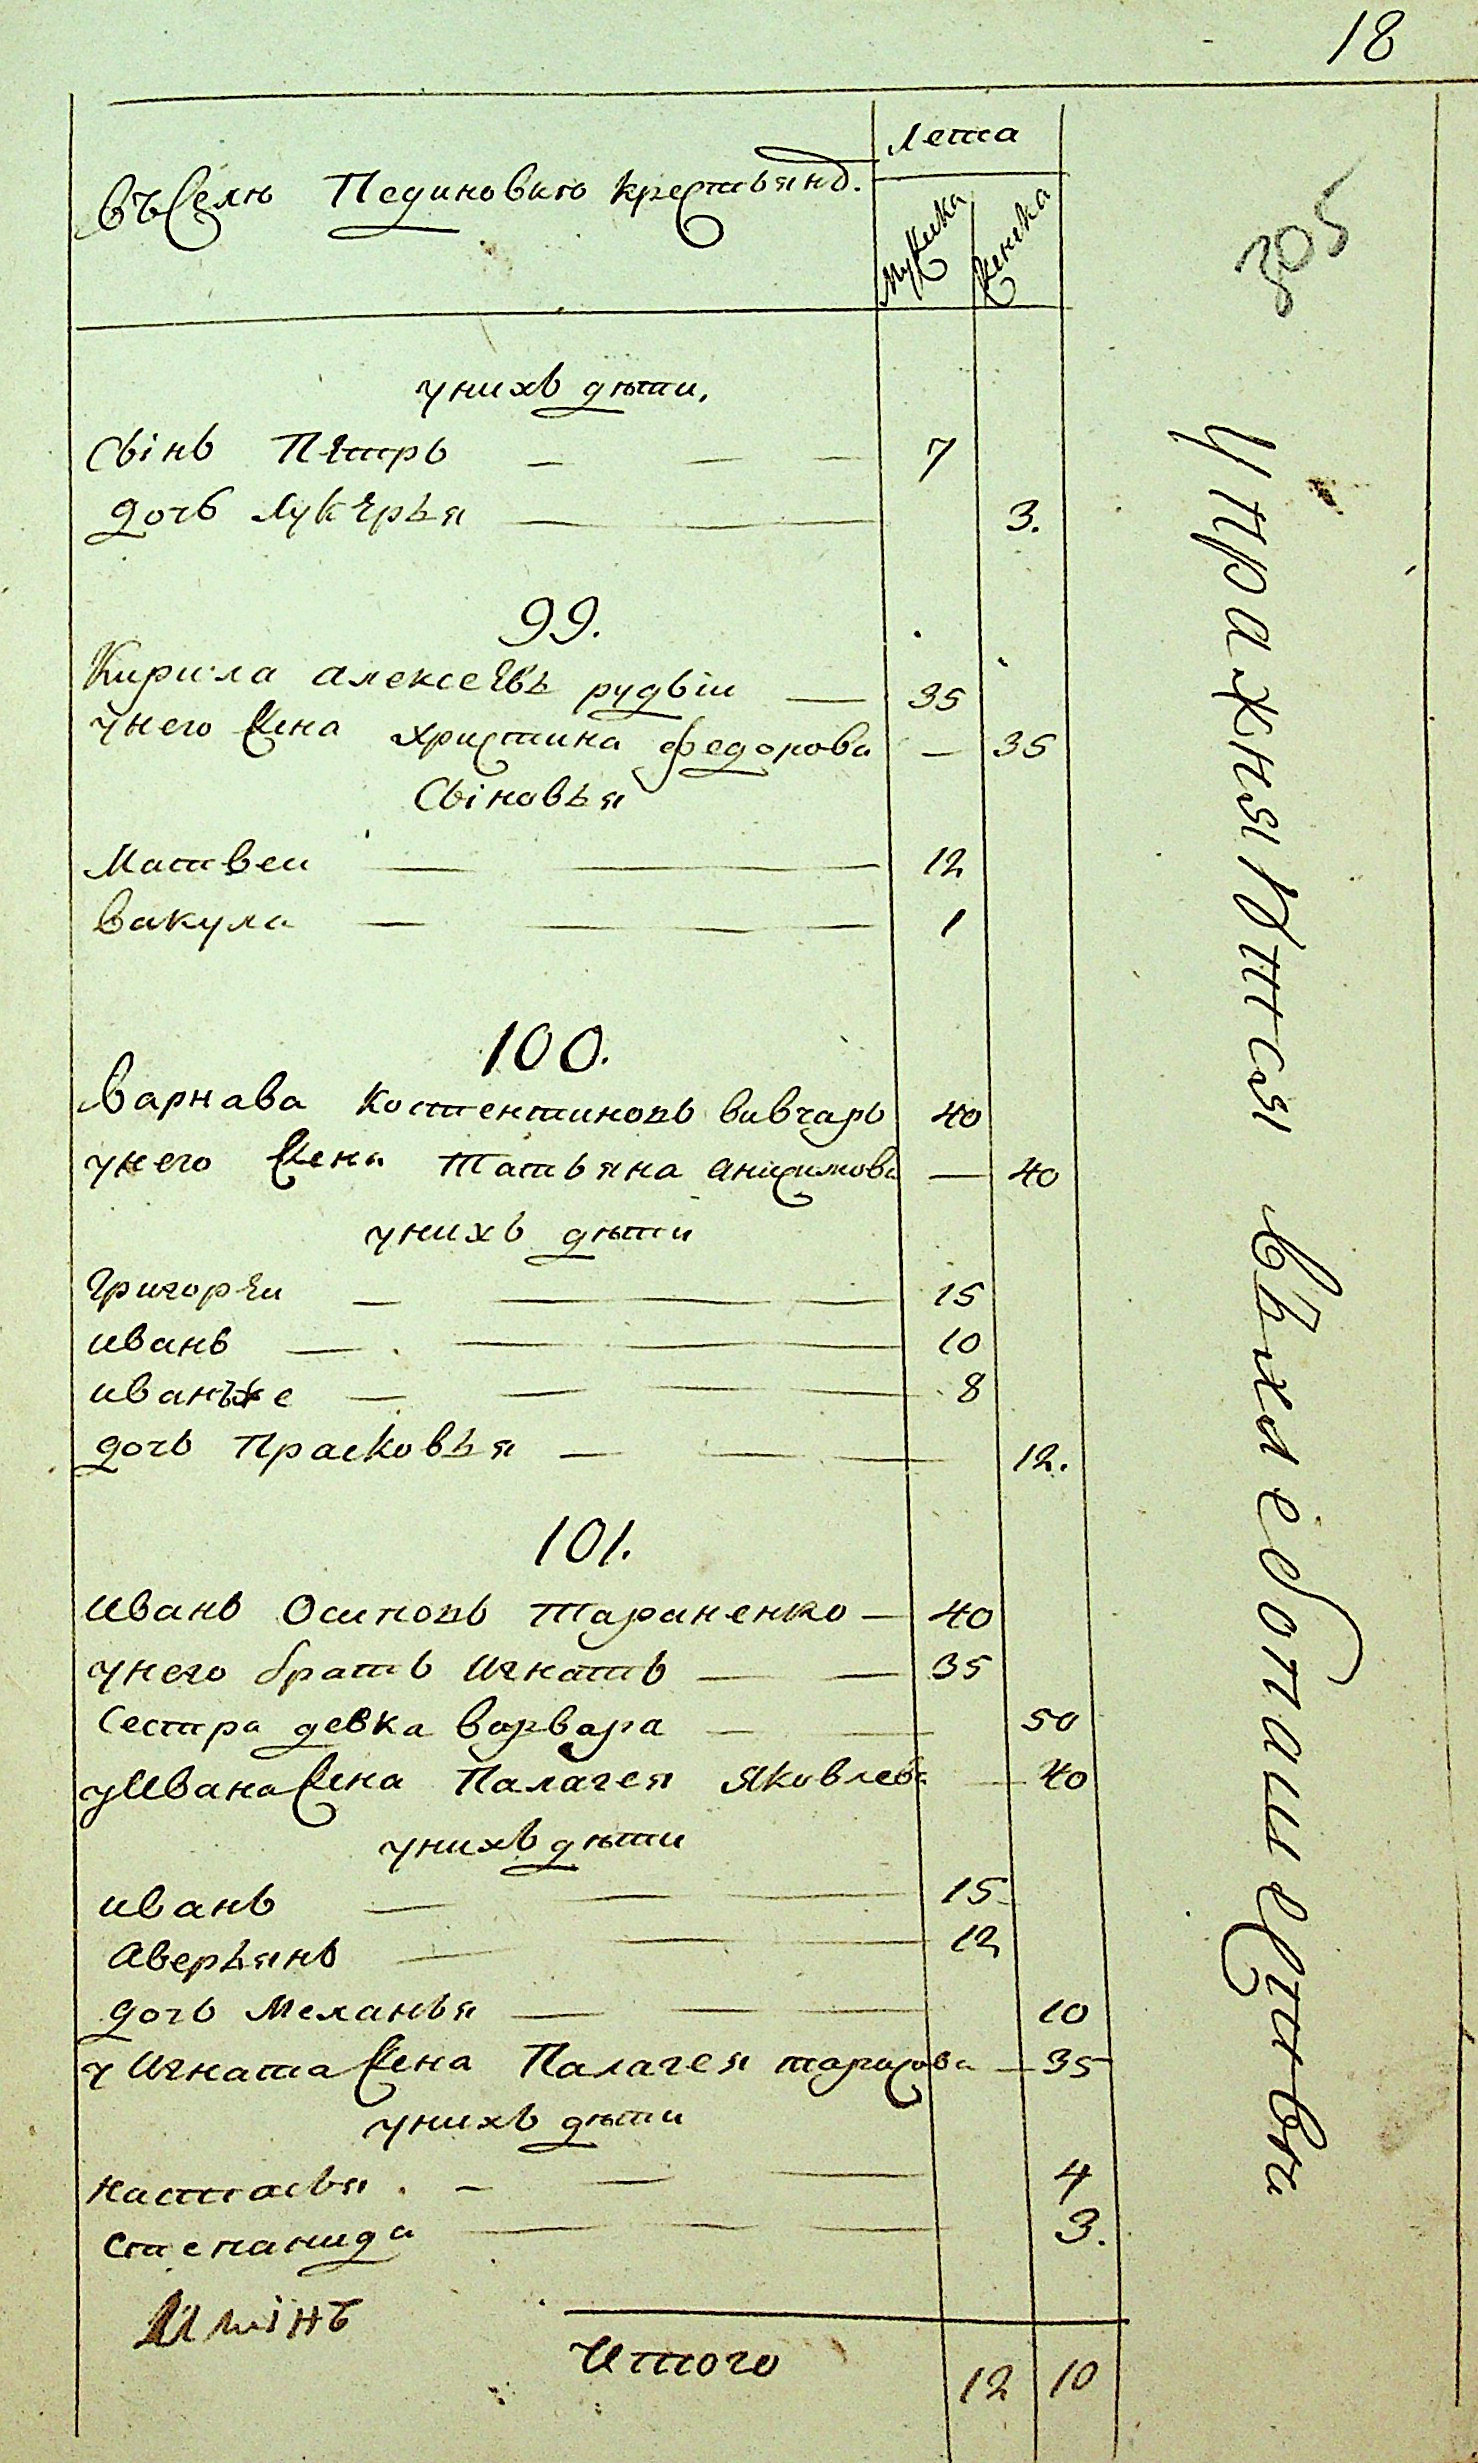 18
Лета
въ Селѣ Пединовкѣ крестьянъ.
Мужска
Женска
305
у нихъ дѣти.
Сынъ Пётръ — — — 7
дочь Лукерья — — 3.
99.
Кирила алексеевъ рудый — 35
у него жена христина федорова — 35
Сыновья
Матвей — — 12
вакула — — — 1
100.
варнава Костентиновъ вивчарь 40
у него жена Татьяна анисимова — 40
у нихъ дѣти
Григорей — — — 15
иванъ — — 10
иванъ же — — — 8
дочь Прасковья — — — 12.
101.
иванъ Осиповъ Тараненко — 40
у него братъ Игнатъ — — 35
Сестра девка варвара — — 50
у Ивана жена Палагея Яковлева — 40
у нихъ дѣти
иванъ — — — 15
Аверьянъ — — — 12
дочь Меланья — — — 10
у Игната жена Палагея тарасова — 35
у нихъ дѣти
настасья. — — — 4
степанида — — — 3.
Итого 12 10
упражняются въ хлебопашестве